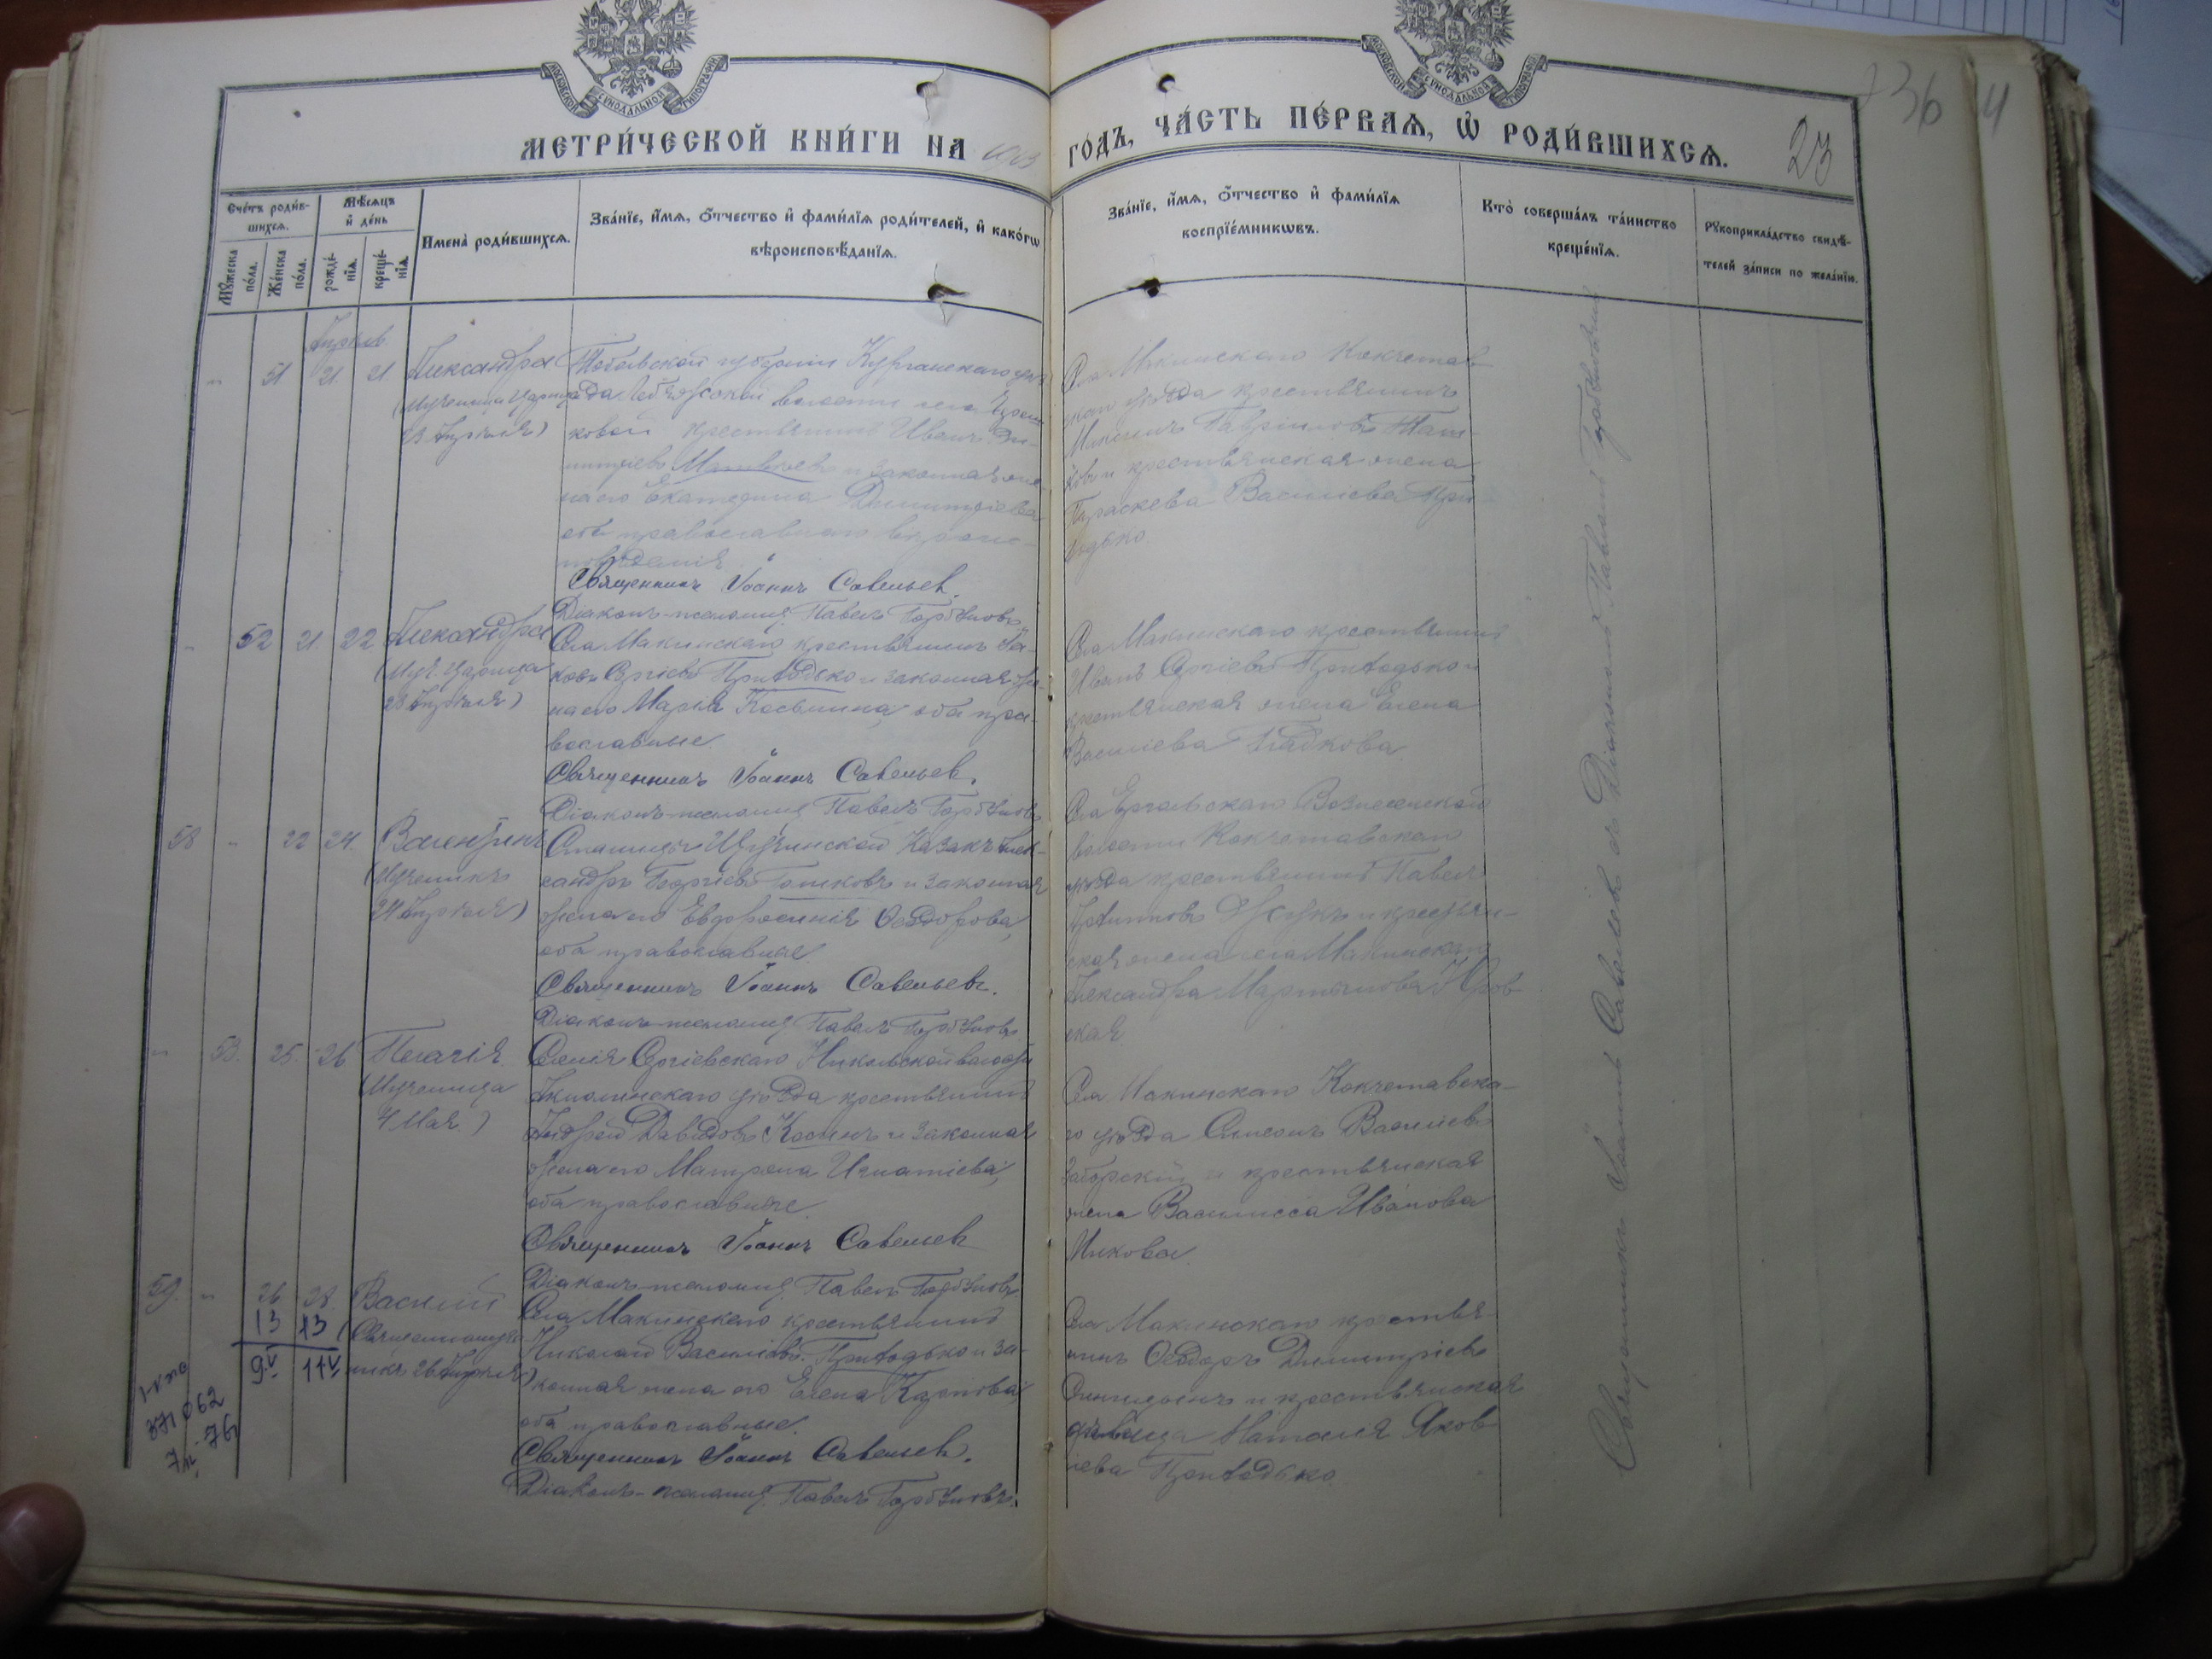 МОСКОВСКОЙ СѴНОДАЛЬНОЙ ТИПОГРАФІИ
МОСКОВСКОЙ СѴНОДАЛЬНОЙ ТИПОГРАФІИ
МЕТРИ́ЧЕСКОЙ КНИ́ГИ НА
ГО́ДЪ, ЧА́СТЬ ПЕ́РВАѦ, Ѡ҆ РОДИ́ВШИХСѦ.
23
36
Сче́тъ роди́в-
шихсѧ.
Мѣ́сѧцъ
и҆ де́нь
Мꙋ́жеска по́ла.
Же́нска по́ла.
рожде́-
нїѧ.
креще́-
нїѧ.
Имена̀ роди́вшихсѧ.
Зва́нїе, и҆́мѧ, ѻ҆́тчество и҆ фами́лїѧ роди́телей, и҆ како́гѡ
вѣроисповѣ́данїѧ.
Зва́нїе, и҆́мѧ, ѻ҆́тчество и҆ фами́лїѧ
воспрїе́мникѡвъ.
Кто̀ соверша́лъ та́инство
креще́нїѧ.
Рꙋкоприкла́дство свидѣ́-
телей за́писи по жела́нїю.
Апрѣль
" 51 21. 21.
Александра
(Мученица царица
23 Апрѣля)
Тобольской губерніи Курганскаго уѣз
да Лебяжской волости села
ковой крестьянинъ Иванъ Ди-
митріевъ Матвѣевъ и законная же-
на его Екатерина Димитріева
оба православнаго вѣроис-
повѣданія
Священникъ Іоаннъ Савельевъ.
Діаконъ-псаломщ. Павелъ Горбуновъ
Села Макинскаго Кокчетав-
скаго уѣзда крестьянинъ
Гавріиловъ
и крестьянская жена
Параскева Василіева При
ходько
" 52 21. 22
Александра
(Муч. царица
23 Апрѣля)
Села Макинскаго крестьянинъ Іа-
ковъ Сергіевъ Приходько и законная же-
на его Марія Косьмина, оба пра-
вославные
Священникъ Іоаннъ Савельевъ.
Діаконъ-псаломщ. Павелъ Горбуновъ
Села Макинскаго крестьянинъ
Иванъ Сергіевъ Приходько и
крестьянская жена Елена
Василіева Гладкова.
58 " 22 24.
Валентинъ
(Мученикъ
24 Апрѣля)
Станицы Щучинской казакъ Алек-
сандръ Георгіевъ и законная
жена его Евфросинія Ѳеодорова,
оба православные.
Священникъ Іоаннъ Савельевъ.
Діаконъ-псаломщ. Павелъ Горбуновъ
Села Вознесенской
волости Кокчетавскаго
уѣзда крестьянинъ Павелъ
и крестьян-
ская жена села Макинскаго
Александра Мартынова
ская
" 53. 25. 26
Пелагія
(Мученица
4 Мая.)
Селенія Сергіевскаго Никольской волости
Акмолинскаго уѣзда крестьянинъ
Андрей Давидовъ Косинъ и законная
жена его Матрона Игнатіева,
оба православные.
Священникъ Іоаннъ Савельевъ
Діаконъ-псаломщ. Павелъ Горбуновъ
Села Макинскаго Кокчетавска-
го уѣзда Симеонъ Василіевъ
Заборскій и крестьянская
жена Василисса Иванова
59. " 26 28.
Василій
(Священномуче-
никъ 26 Апрѣля)
13 13
9.V 11V
Села Макинскаго крестьянинъ
Николай Василіевъ Приходько и за-
конная жена его Елена Карпова,
оба православные.
Священникъ Іоаннъ Савельевъ.
Діаконъ-псаломщ. Павелъ Горбуновъ.
Села Макинскаго крестья
нинъ Ѳеодоръ Димитріевъ
и крестьянская
дѣвица Наталія Яков
лева Приходько
Священникъ Іоаннъ Савельевъ съ Діакономъ Павломъ Горбуновымъ